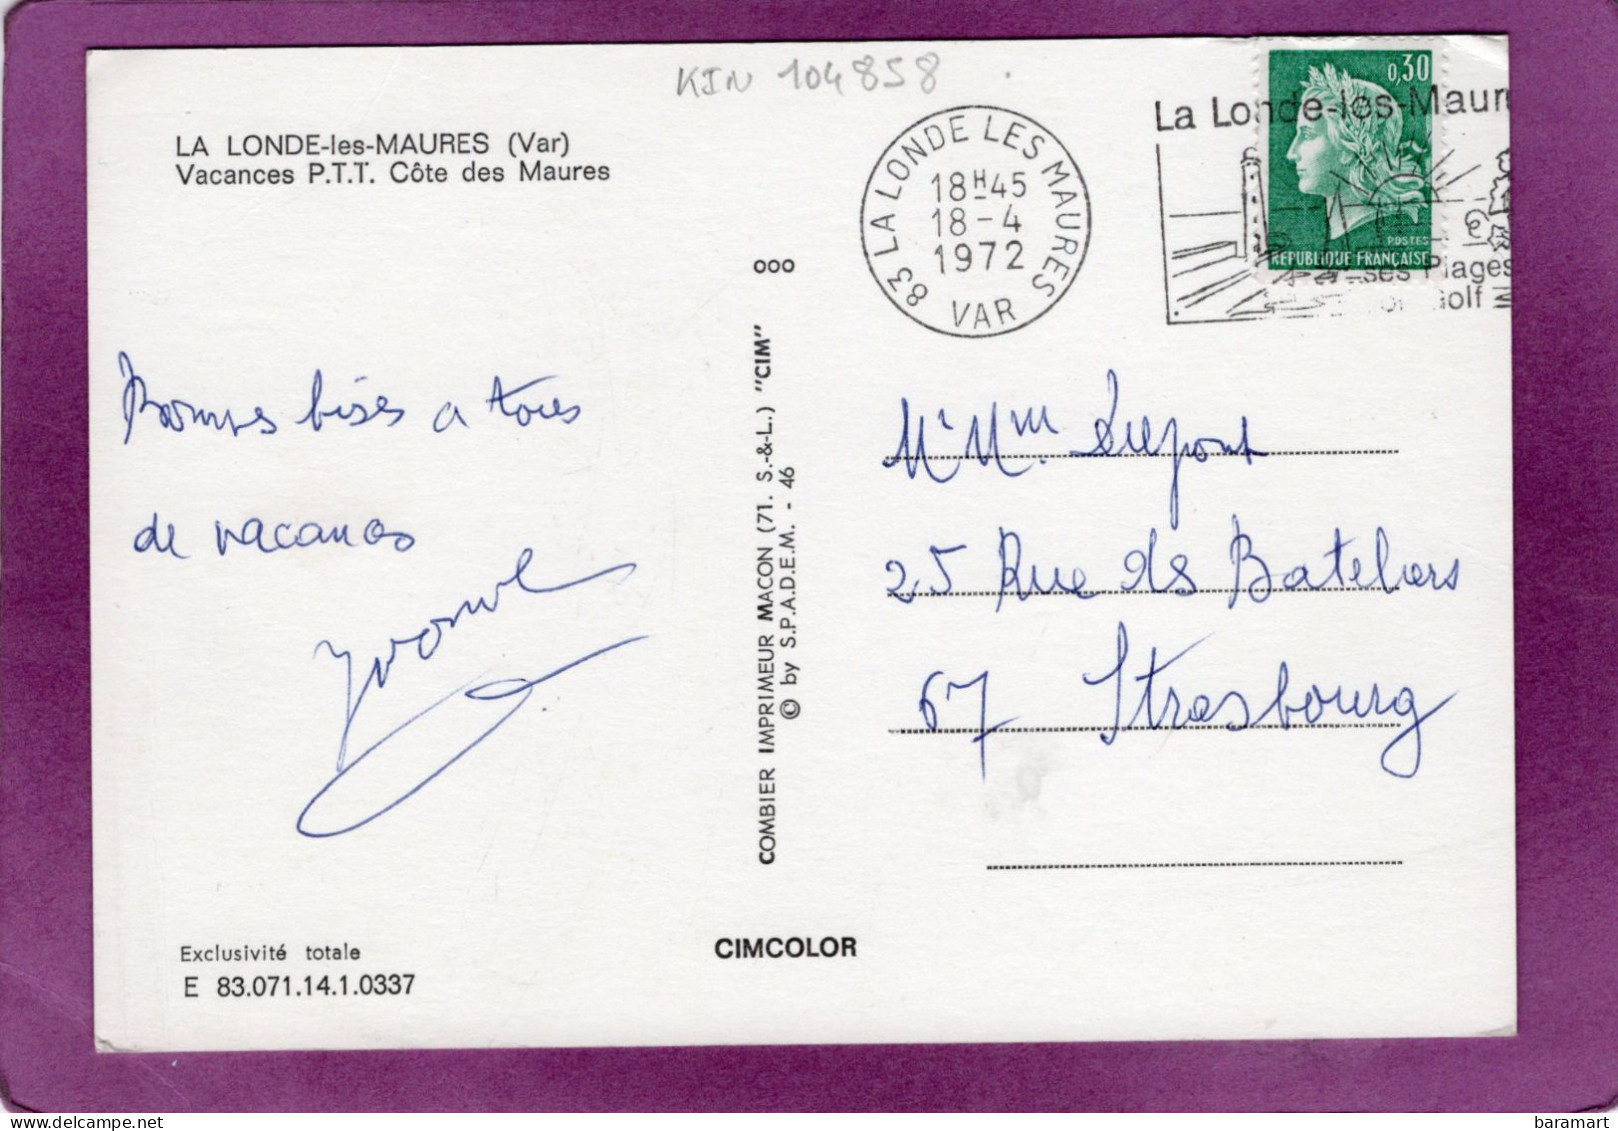 KIN 104858
LA LONDE-les-MAURES (Var)
Vacances P.T.T. Côte des Maures
83 LA LONDE LES MAURES
18H45
18-4
1972
VAR
La Londe-les-Maur
0,30
POSTES
REPUBLIQUE FRANÇAISE
ses Plages
Golf
ooo
Bonnes bises a tous
de vacances
Yvonne
COMBIER IMPRIMEUR MACON (71. S.-&-L.) "CIM"
© by S.P.A.D.E.M. - 46
Mr Mme Dupont
25 Rue des Bateliers
67 Strasbourg
Exclusivité totale
E 83.071.14.1.0337
CIMCOLOR
baramart